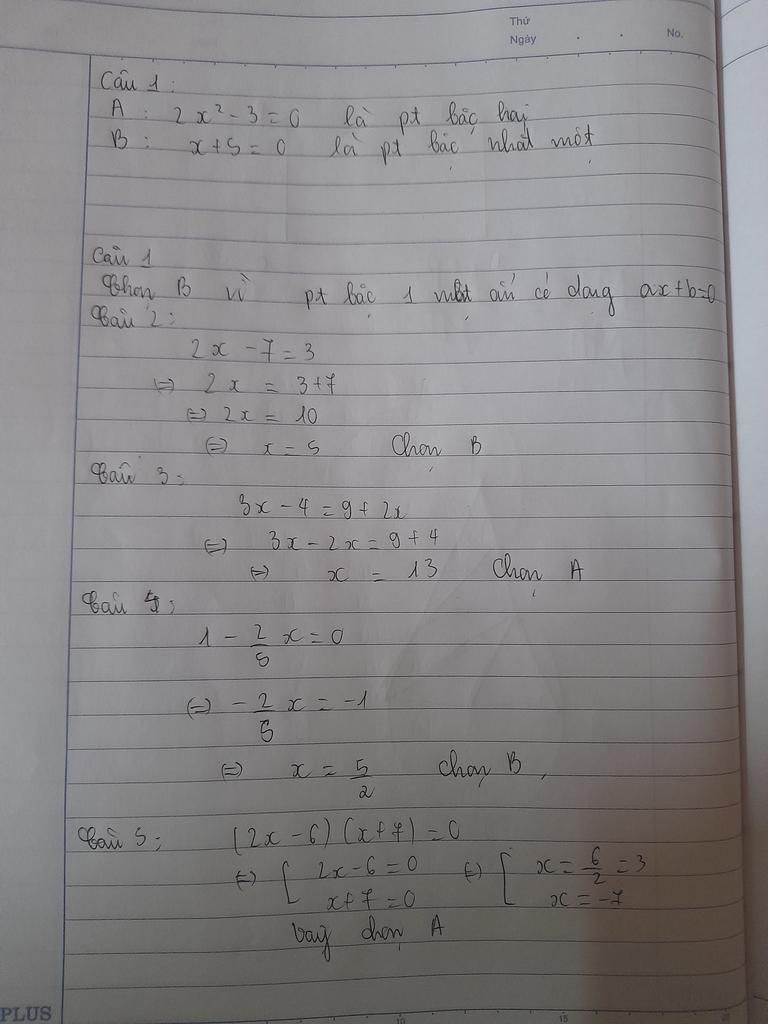 Thứ
Ngày . . No.
Câu 1:
A: 2x² - 3 = 0 là pt bậc hai
B: x + 5 = 0 là pt bậc nhất một
Câu 1
Chọn B vì pt bậc 1 một ẩn có dạng ax + b = 0
Câu 2:
2x - 7 = 3
⇔ 2x = 3 + 7
⇔ 2x = 10
⇔ x = 5 Chọn B
Câu 3:
3x - 4 = 9 + 2x
⇔ 3x - 2x = 9 + 4
⇔ x = 13 Chọn A
Câu 4:
1 - 2/5 x = 0
⇔ - 2/5 x = -1
⇔ x = 5/2 chọn B,
Câu 5: (2x - 6)(x + 7) = 0
⇔ [ 2x - 6 = 0 ⇔ [ x = 6/2 = 3
x + 7 = 0 x = -7
Vậy chọn A
PLUS 10 15